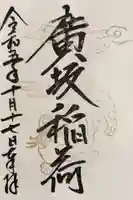 廣坂稲荷
令和五年十月十七日奉拝